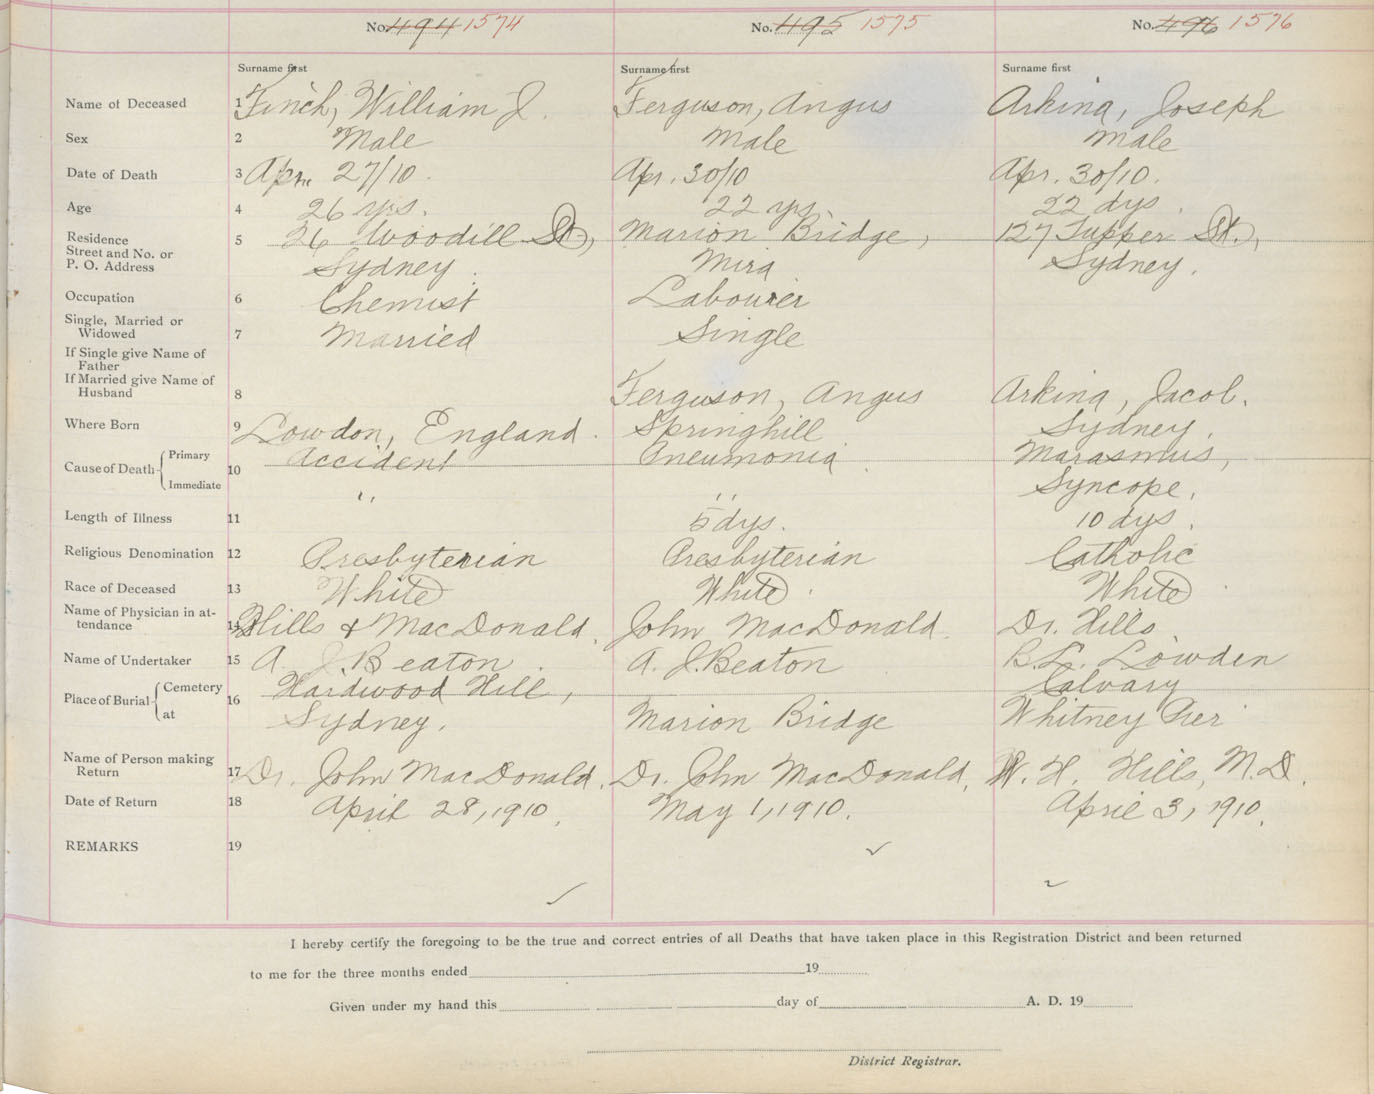 No. 494 1574 No. 495 1575 No. 496 1576
Surname first Surname first Surname first
Name of Deceased 1 Finch, William J. Ferguson, Angus Arkina, Joseph
Sex 2 Male Male Male
Date of Death 3 Apr. 27/10. Apr. 30/10 Apr. 30/10.
Age 4 26 yrs. 22 yrs. 22 dys.
Residence
Street and No. or
P. O. Address
5 26 Woodill St, Marion Bridge, 127 Tupper St.,
Sydney. Mira Sydney.
Occupation 6 Chemist Labourer
Single, Married or
Widowed 7 Married Single
If Single give Name of
Father
If Married give Name of
Husband 8 Ferguson, Angus Arkina, Jacob.
Where Born 9 Lowdon, England. Springhill Sydney.
Cause of Death Primary 10 Accident Pneumonia Marasmus,
Immediate " " Syncope.
Length of Illness 11 5 dys. 10 dys.
Religious Denomination 12 Presbyterian Presbyterian Catholic
Race of Deceased 13 White White White
Name of Physician in at-
tendance 14 Hills & MacDonald. John MacDonald. Dr. Hills
Name of Undertaker 15 A. J. Beaton. A. J. Beaton B. L. Lowden
Place of Burial Cemetery 16 Hardwood Hill, Calvary
at Sydney. Marion Bridge Whitney Pier
Name of Person making
Return 17 Dr. John MacDonald. Dr. John MacDonald, W. H. Hills, M.D.
Date of Return 18 April 28, 1910. May 1, 1910. April 3, 1910.
REMARKS 19
I hereby certify the foregoing to be the true and correct entries of all Deaths that have taken place in this Registration District and been returned
to me for the three months ended 19
Given under my hand this day of A. D. 19
District Registrar.